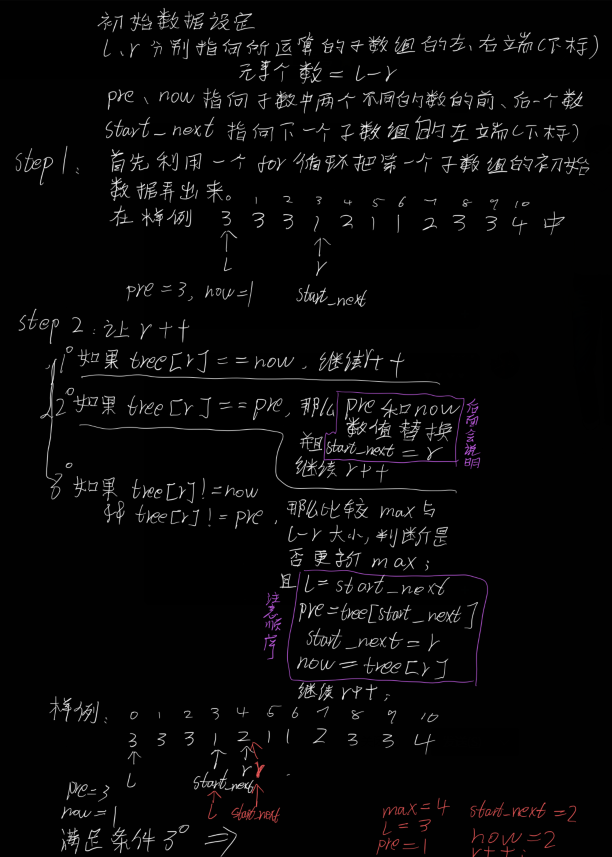 初始数据设定
L、r 分别指向所运算的子数组的左、右端(下标)
元素个数 = L-r
pre、now 指向子数中两个不同的数的前、后一个数
start_next 指向下一个子数组的左端(下标)
step 1: 首先利用一个 for 循环把第一个子数组的初始
数据弄出来。
1 2 3 4 5 6 7 8 9 10
在样例 3 3 3 1 2 1 1 2 3 3 4 中
↑ ↑
L r
pre = 3, now = 1 start_next
step 2: 让 r++
1° 如果 tree[r] == now, 继续 r++
2° 如果 tree[r] == pre, 那么 pre 和 now
数值替换
并且 start_next = r
后面会说明
继续 r++
3° 如果 tree[r] != now
&& tree[r] != pre, 那么比较 max 与
L-r 大小, 判断是
否更新 max;
且 L = start_next
pre = tree[start_next]
start_next = r
now = tree[r]
注意顺序
继续 r++;
样例: 0 1 2 3 4 5 6 7 8 9 10
3 3 3 1 2 1 1 2 3 3 4
↑ ↑ ↑
L start_next r r
pre = 3
now = 1
L start_next
满足条件 3° ⇒
max = 4 start_next = 2
L = 3 now = 2
pre = 1 r++;